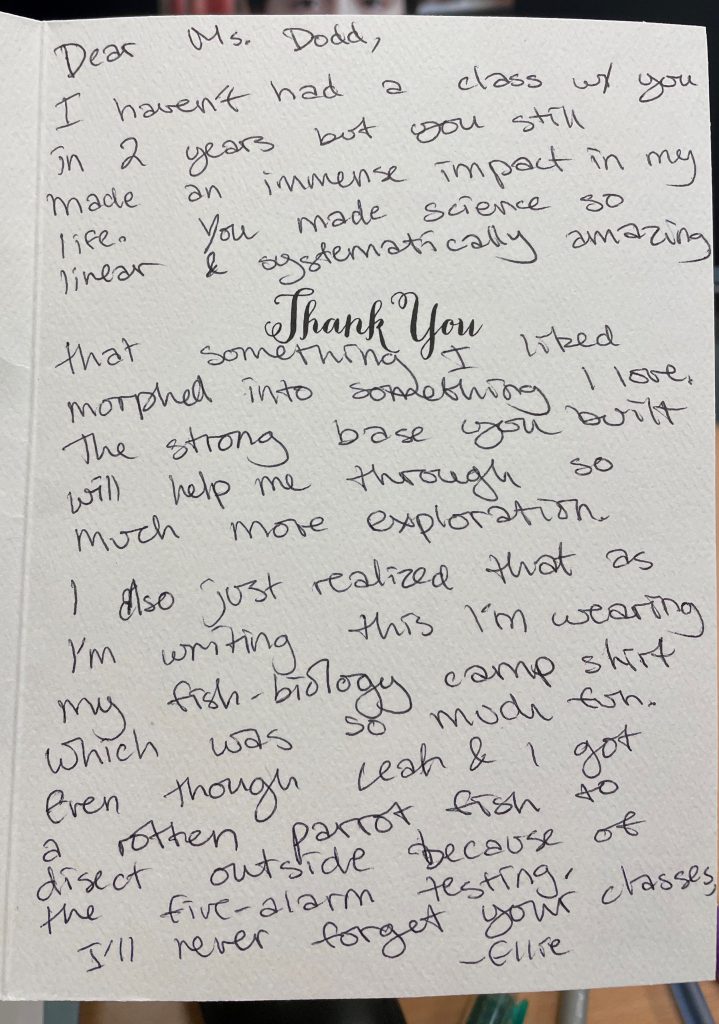 Dear Ms. Dodd,
I haven't had a class w/ you
in 2 years but you still
made an immense impact in my
life. You made science so
linear & systematically amazing
Thank You
that something I liked
morphed into something I love.
The strong base you built
will help me through so
much more exploration.
I also just realized that as
I'm writing this I'm wearing
my fish-biology camp shirt
which was so much fun.
Even though Leah & I got
a rotten parrot fish to
disect outside because of
the five-alarm testing.
I'll never forget your classes,
-Ellie